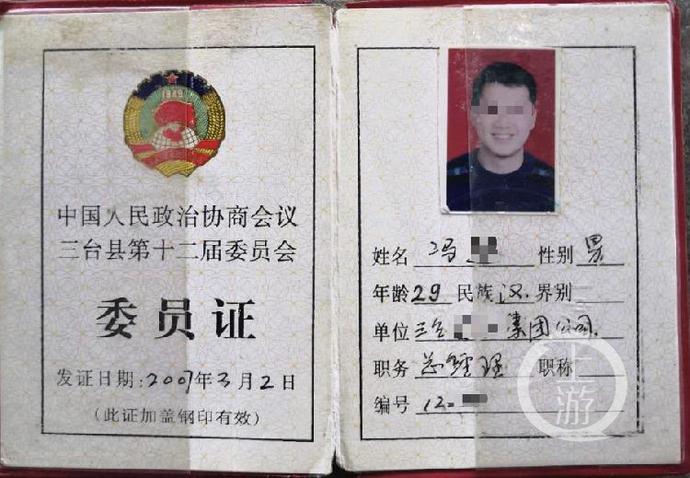 1949
中国人民政治协商会议
三台县第十二届委员会
委员证
发证日期：2007年3月2日
（此证加盖钢印有效）
姓名 冯 性别 男
年龄 29 民族 汉 界别
单位 三台 集团公司
职务 总经理 职称
编号 12-
上游